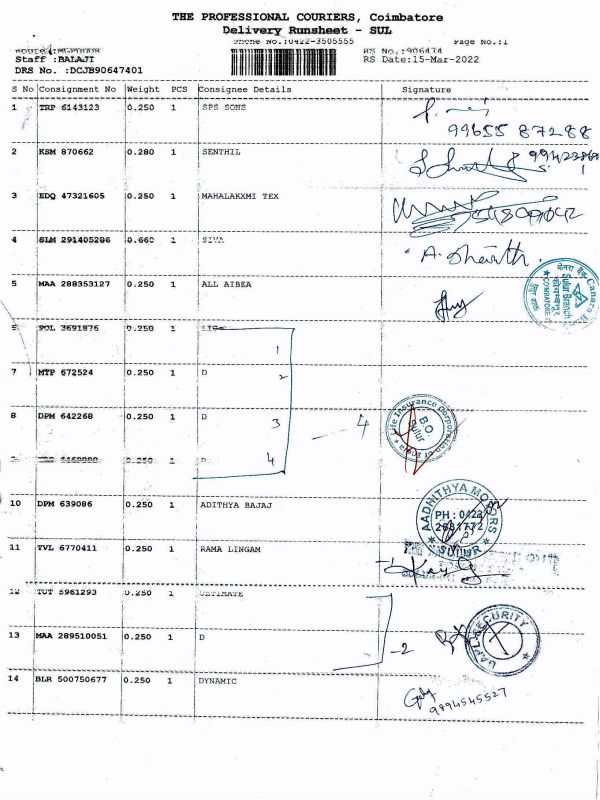 THE PROFESSIONAL COURIERS, Coimbatore
Delivery Runsheet - SUL
Phone No.:0422-3505555 Page No.:1
RS No.:906474
Staff :BALAJI RS Date:15-Mar-2022
DRS No. :DCJB90647401
S No Consignment No Weight PCS Consignee Details Signature
1 TRP 6143123 0.250 1 SPS SONS
99655 87288
2 KSM 870662 0.280 1 SENTHIL
3 EDQ 47321605 0.250 1 MAHALAKXMI TEX
4 SLM 291405286 0.660 1 SIVA
A. Sharath.
5 MAA 288353127 0.250 1 ALL AIBEA
Canara
Sulur Branch
COIMBATORE
6 SOL 3691876 0.250 1 LIC
1
7 MTP 672524 0.250 1 D
2
8 DPM 642268 0.250 1 D
3
— 4
Life Insurance Corporation of India
B O
Sulur
0.250 1 D
4
10 DPM 639086 0.250 1 ADITHYA BAJAJ
AADHITHYA MOTORS
PH : 0422
2681772
SULUR
11 TVL 6770411 0.250 1 RAMA LINGAM
12 TUT 5961293 0.250 1 ULTIMATE
13 MAA 289510051 0.250 1 D
-2
SECURITY
14 BLR 500750677 0.250 1 DYNAMIC
9894545527